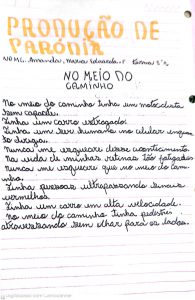 PRODUÇÃO DE
PARÓDIA
NOME: Amanda, Maria Eduarda. Turma
NO MEIO DO
CAMINHO
No meio do caminho tinha um motociclista
sem capacete.
Tinha um carro estragado.
Tinha um ser humano no celular
ao dirigir.
Nunca me esquecerei desse acontecimento.
Na vida de minhas retinas tão fatigadas
Nunca me esquecerei que no meio do cami-
nho.
Tinha pessoas ultrapassando sinais
vermelhos.
Tinha um carro em alta velocidade.
No meio do caminho tinha pedestre
atravessando sem olhar para os lados.